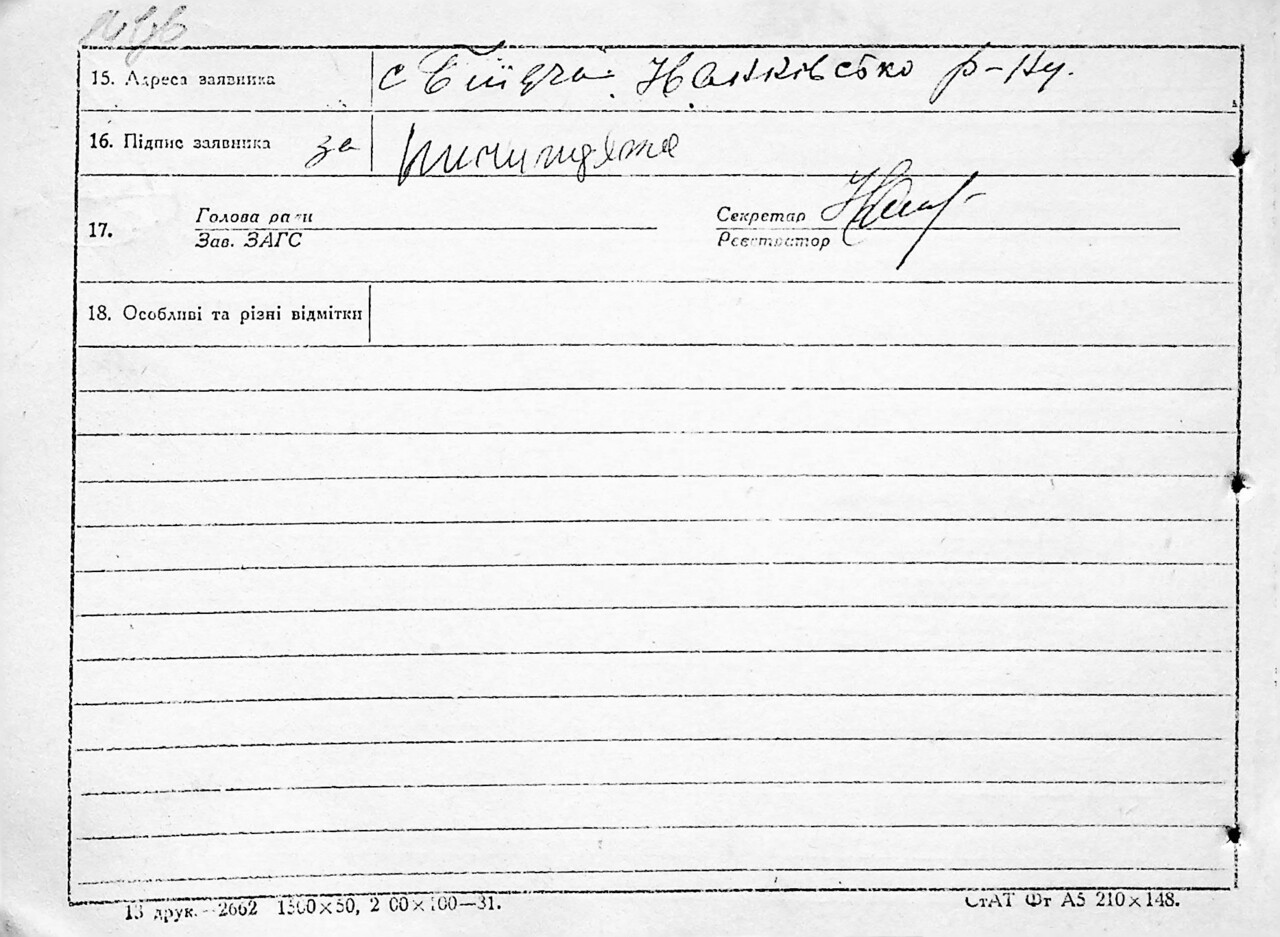 15. Адреса заявника с Бийгча. Наквівсько р-ну.
16. Підпис заявника за
17. Голова ради Секретар
Зав. ЗАГС Реєстратор
18. Особливі та різні відмітки
13 друк.—2662 1500×50, 2 00×100—31. СтАТ Фт А5 210×148.